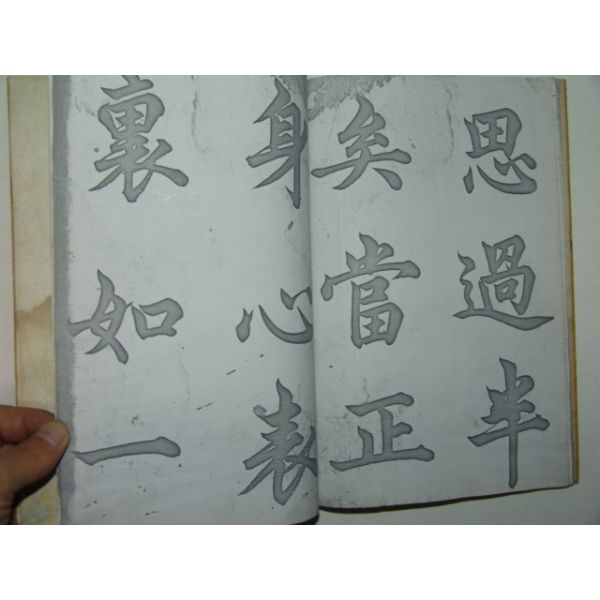 思過半
矣當正
身心表
裏如一